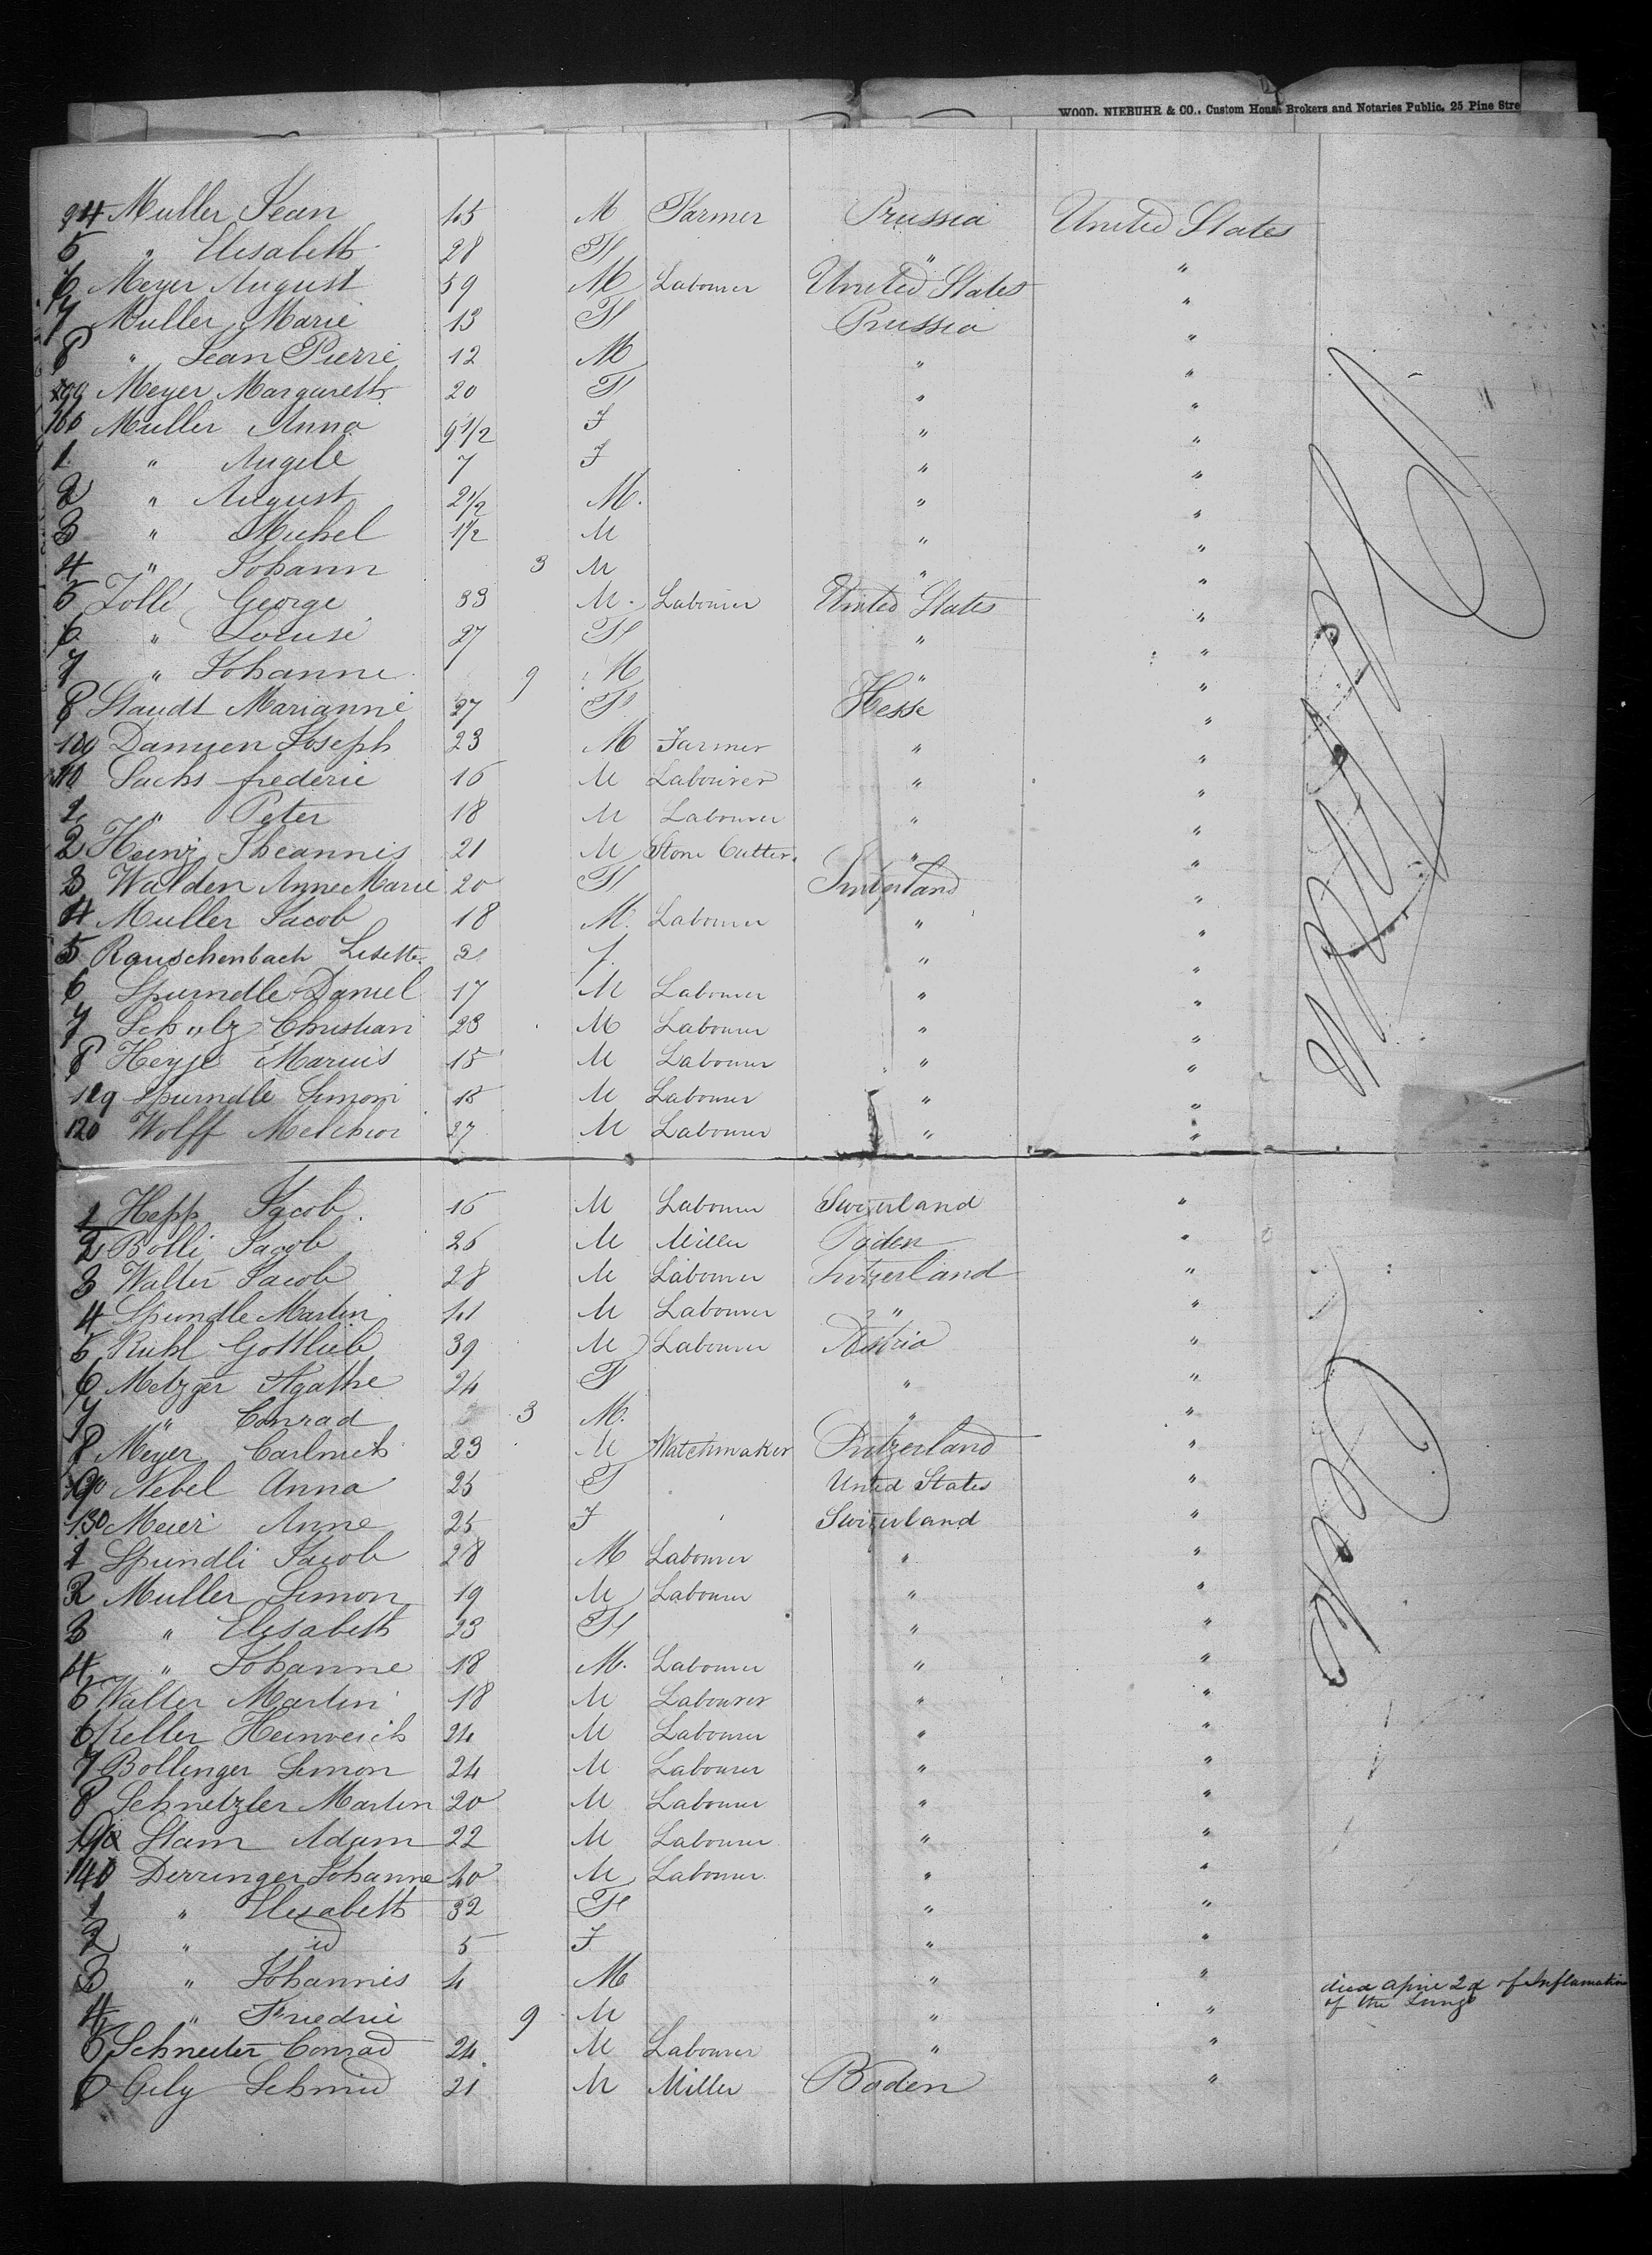 WOOD, NIEBUHR & CO., Custom House Brokers and Notaries Public, 25 Pine Stre
94 Muller Jean 45 M Farmer Prussia United States
5 " Elisabeth 28 F " "
6 Meyer August 59 M Labourer United States "
7 Muller Marie 13 F Prussia "
8 " Jean Pierre 12 M " "
99 Meyer Margareth 20 F " "
100 Muller Anna 9 1/2 F " "
1 " Angele 7 F " "
2 " August 2 1/2 M. " "
3 " Michel 1 1/2 M " "
4 " Johann 3 M " "
5 Zollé George 33 M. Labourer United States "
6 " Louise 27 F " "
7 " Johanne 9 M " "
8 Staudt Marianne 27 F Hesse "
109 Damien Joseph 23 M Farmer " "
110 Sachs frederic 16 M Labourer " "
1 " Peter 18 M Labourer " "
2 Heinz Jheannis 21 M Stone Cutter. " "
3 Walden Anne Marie 20 F Switzerland "
4 Muller Jacob 18 M. Labourer " "
5 Rauschenbach Lisette 21 f. " "
6 Spurndle Daniel 17 M Labourer " "
7 Schulz Christian 23 M Labourer " "
8 Marius 15 M Labourer " "
119 Spurndle Simon 18 M Labourer " "
120 Wolff Melchior 27 M Labourer " "
1 Hepp Jacob 16 M Labourer Switzerland "
2 Bolli Jacob 26 M Miller Baden "
3 Walter Jacob 28 M Labourer Switzerland "
4 Spundle Martin 41 M Labourer " "
5 Ruhl Gottlieb 39 M Labourer Austria "
6 Metzger Agathe 24 F " "
7 " Conrad 3 M. " "
8 Meyer 23 M Watchmaker Switzerland "
9 Nebel Anna 25 F United States "
130 Meier Anne 25 F Switzerland "
1 Spundli Jacob 28 M Labourer " "
2 Muller Simon 19 M Labourer " "
3 " Elisabeth 23 F " "
4 " Johanne 18 M. Labourer " "
5 Walter Martin 18 M Labourer " "
6 Keller Heinreich 24 M Labourer " "
7 Bollinger Simon 24 M Labourer " "
8 Schnetzler Martin 20 M Labourer " "
9 Stam Adam 22 M Labourer " "
140 Derringer Johanne 40 M Labourer " "
1 " Elisabeth 32 F " "
2 " id 5 F " "
3 " Johannis 4 M " " died April 2d of Inflamation
of the Lungs
4 " Friedric 9 M " "
5 Schneiter Conrad 24 M Labourer " "
6 Gely Schmid 21 M Miller Baden "